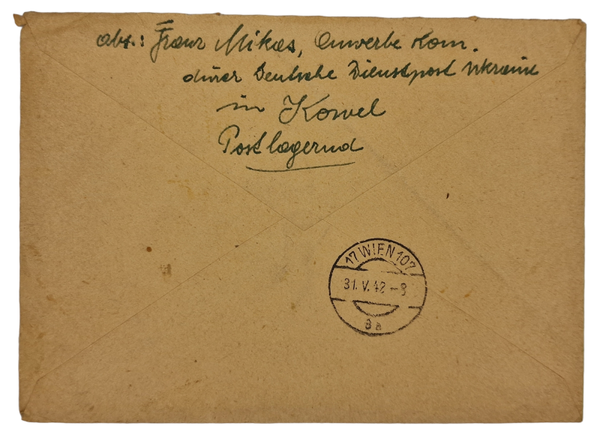 abs.: Franz Mikas, Anwerbe Kom.
durch Deutsche Dienstpost Ukraine
in Kowel
Postlagernd
17 WIEN 107
31. V. 42 - 8
8a